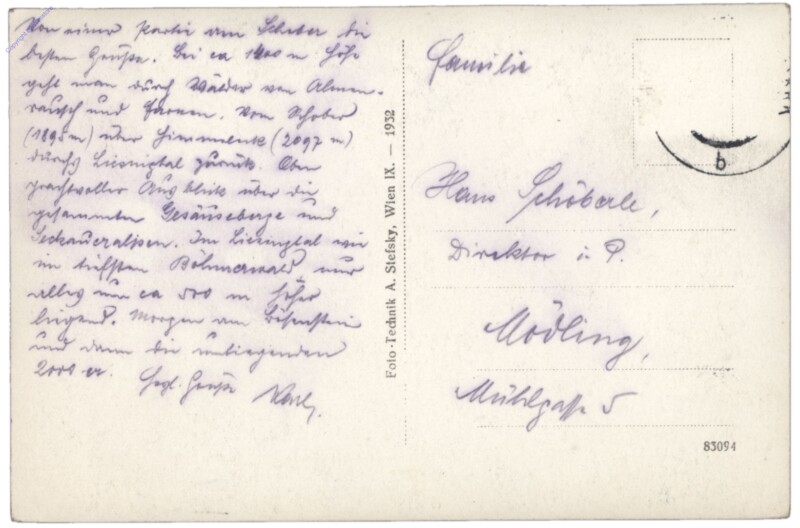 Von einer Partie am Schober die
besten Grüße. Bei ca 1400 m Höhe
geht man durch Wälder von Almen-
rausch und Farnen. Vom Schober
(1895 m) über Himmeleck (2097 m)
durchs Liesingtal zurück. Oben
prachtvoller Ausblick über die
gesammten Gesäuseberge und
Seckaueralpen. Im Liesingtal wie
im tiefsten Böhmerwald, nur
alles um ca 500 m höher
liegend. Morgen am Bösenstein
und dann die umliegenden
2000 er.
Hzgl. Grüße Karl.
Foto-Technik A. Stefsky, Wien IX. — 1932
Familie
Hans Schöberle,
Direktor i. P.
Mödling,
Mühlgasse 5
b
83094